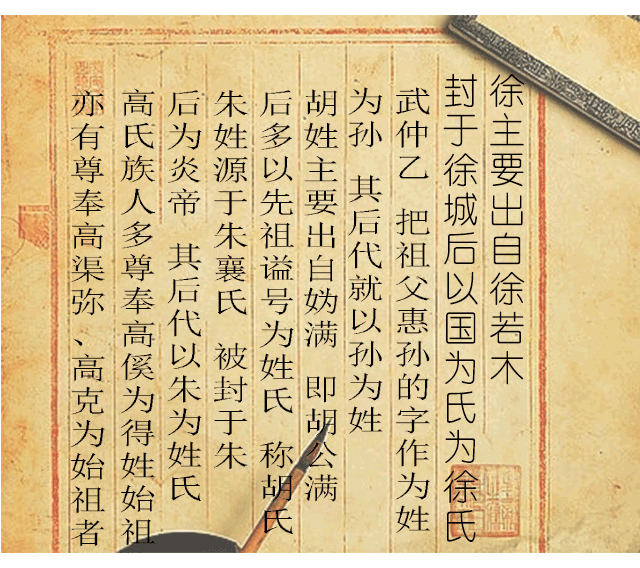 徐主要出自徐若木
封于徐城后以国为氏为徐氏
武仲乙 把祖父惠孙的字作为姓
为孙 其后代就以孙为姓
胡姓主要出自妫满 即胡公满
后多以先祖谥号为姓氏 称胡氏
朱姓源于朱襄氏 被封于朱
后为炎帝 其后代以朱为姓氏
高氏族人多尊奉高傒为得姓始祖
亦有尊奉高渠弥、高克为始祖者